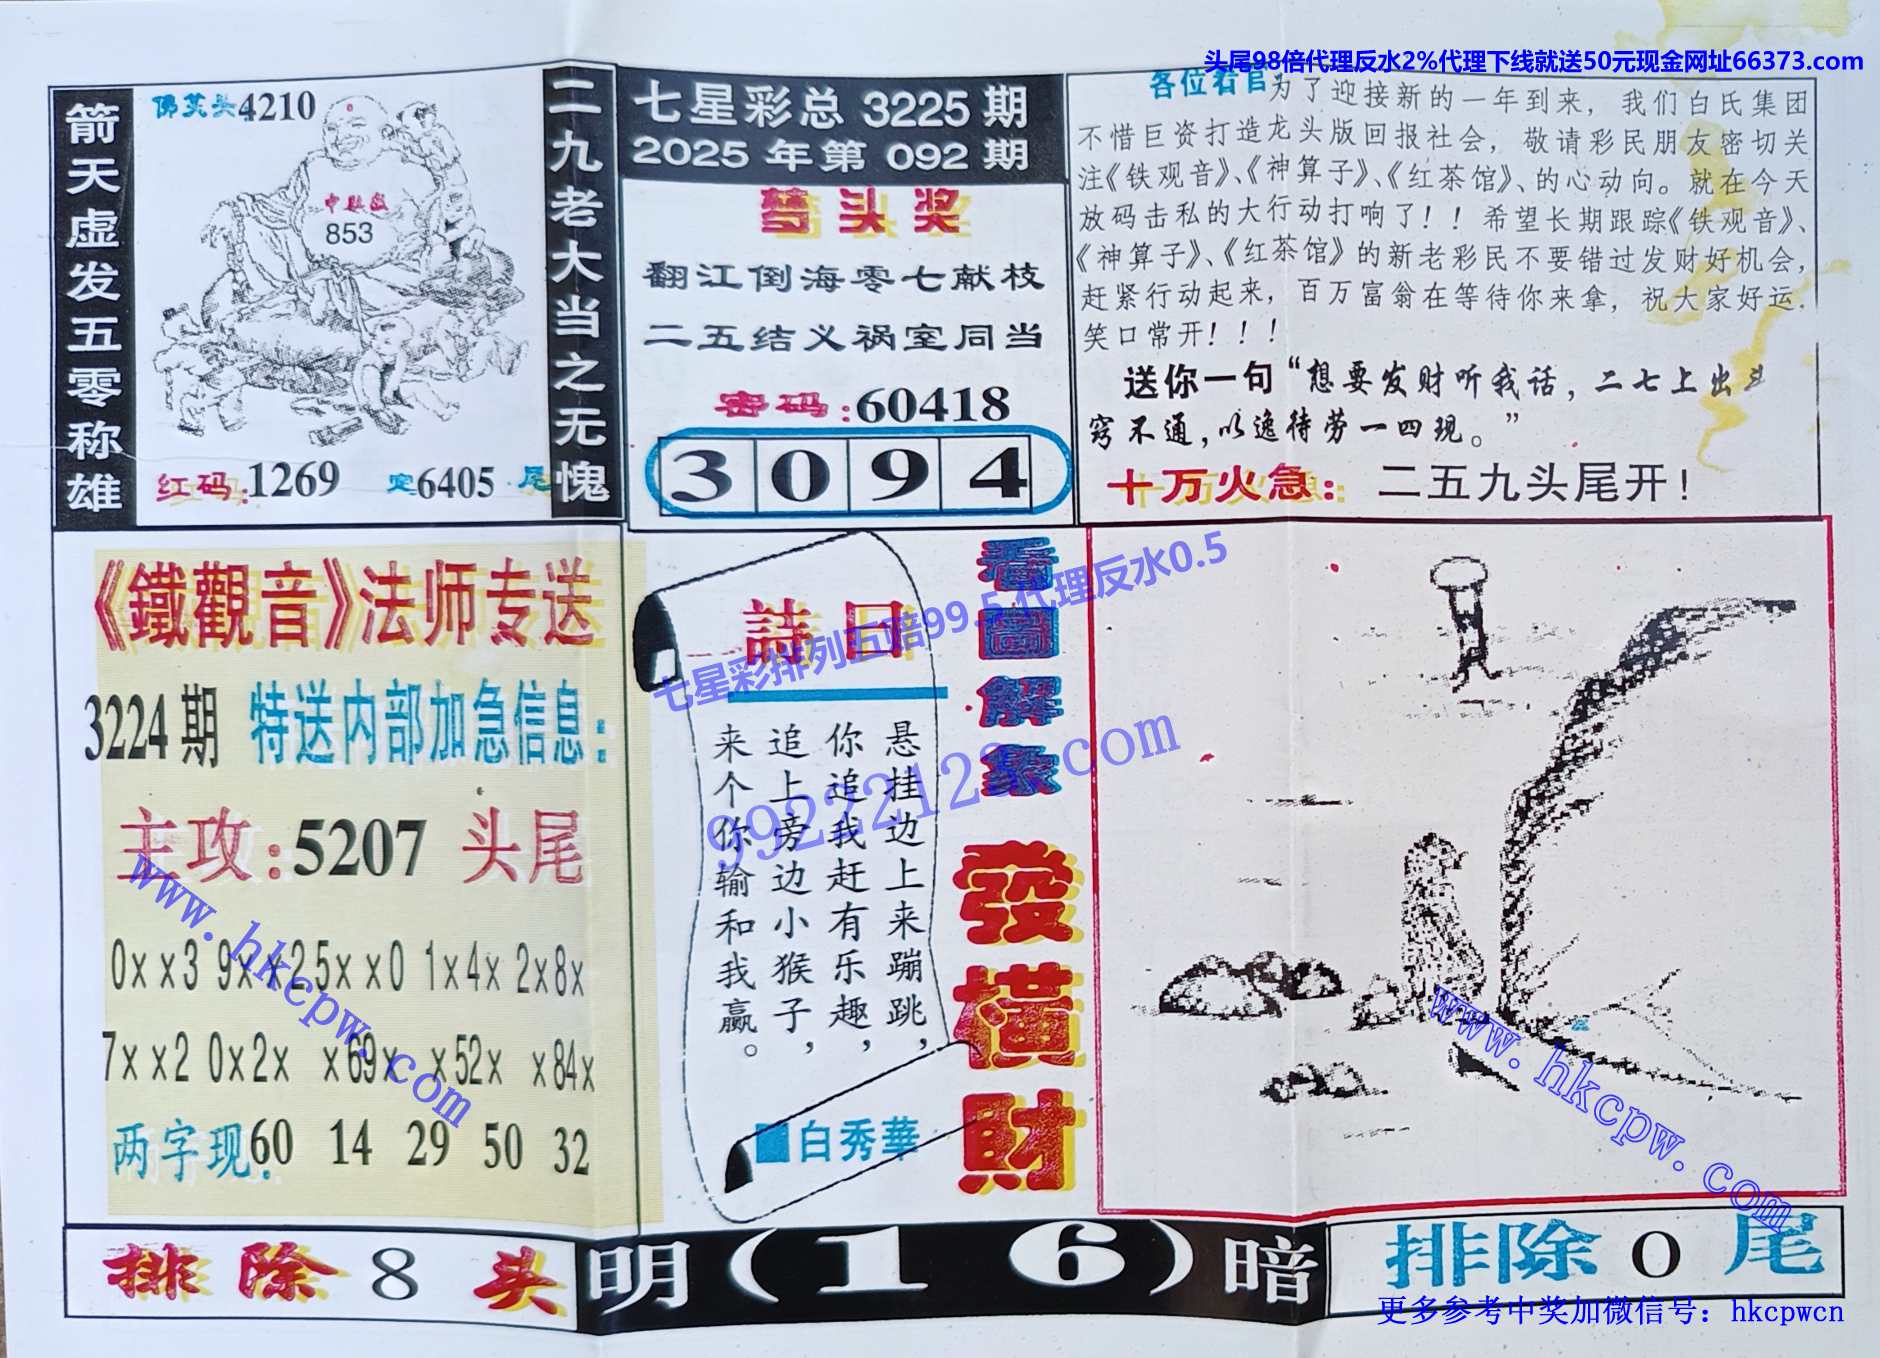 头尾98倍代理反水2%代理下线就送50元现金网址66373.com
箭天虚发五零称雄
佛笑头4210
中肚脐
853
红码:1269
定6405尾
二九老大当之无愧
七星彩总 3225 期
2025 年第 092 期
梦头奖
翻江倒海零七献枝
二五结义祸室同当
密码:60418
3 0 9 4
各位看官为了迎接新的一年到来，我们白氏集团
不惜巨资打造龙头版回报社会，敬请彩民朋友密切关
注《铁观音》、《神算子》、《红茶馆》、的心动向。就在今天
放码击私的大行动打响了！！希望长期跟踪《铁观音》、
《神算子》、《红茶馆》的新老彩民不要错过发财好机会，
赶紧行动起来，百万富翁在等待你来拿，祝大家好运.
笑口常开！！！
送你一句“想要发财听我话，二七上出斗
窍不通，以逸待劳一四现。”
十万火急：二五九头尾开！
《鐵觀音》法师专送
3224 期 特送内部加急信息：
主攻:5207 头尾
0××3 9××2 5××0 1×4× 2×8×
7××2 0×2× ×69× ×52× ×84×
两字现:60 14 29 50 32
詩曰
悬挂边上来蹦跳，
你追我赶有乐趣，
追上旁边小猴子，
来个你输和我赢。
■白秀華
看圖解象
發橫財
七星彩排列五赔99.5 代理反水0.5
99222123.com
www.hkcpw.com
www.hkcpw.com
排除 8 头
明(1 6)暗
排除 0 尾
更多参考中奖加微信号：hkcpwcn